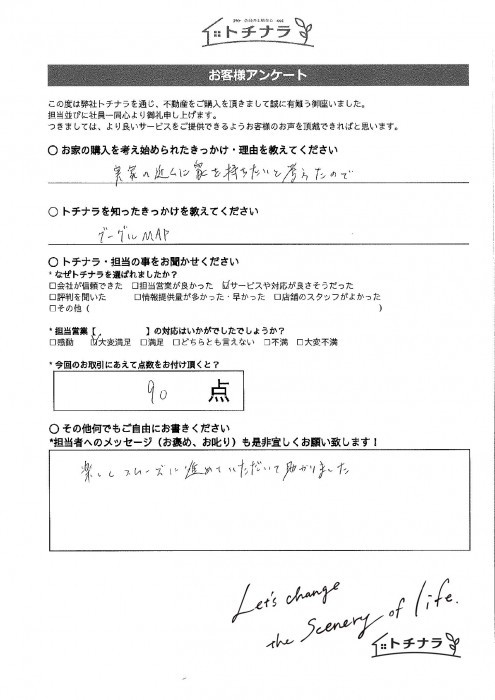 トチナラ
お客様アンケート
この度は弊社トチナラを通じ、不動産をご購入を頂きまして誠に有難う御座いました。
担当並びに社員一同心より御礼申し上げます。
つきましては、より良いサービスをご提供できるようお客様のお声を頂戴できればと思います。
○ お家の購入を考え始められたきっかけ・理由を教えてください
実家の近くに家を持ちたいと考えたので
○ トチナラを知ったきっかけを教えてください
グーグルMAP
○ トチナラ・担当の事をお聞かせください
* なぜトチナラを選ばれましたか？
□会社が信頼できた □担当営業が良かった ☑サービスや対応が良さそうだった
□評判を聞いた □情報提供量が多かった・早かった □店舗のスタッフがよかった
□その他 ( )
* 担当営業【 】の対応はいかがでしたでしょうか？
□感動 ☑大変満足 □満足 □どちらとも言えない □不満 □大変不満
* 今回のお取引にあえて点数をお付け頂くと？
90 点
○ その他何でもご自由にお書きください
*担当者へのメッセージ（お褒め、お叱り）も是非宜しくお願い致します！
楽しくスムーズに進めていただいて助かりました
Let's change
the Scenery of life.
トチナラ